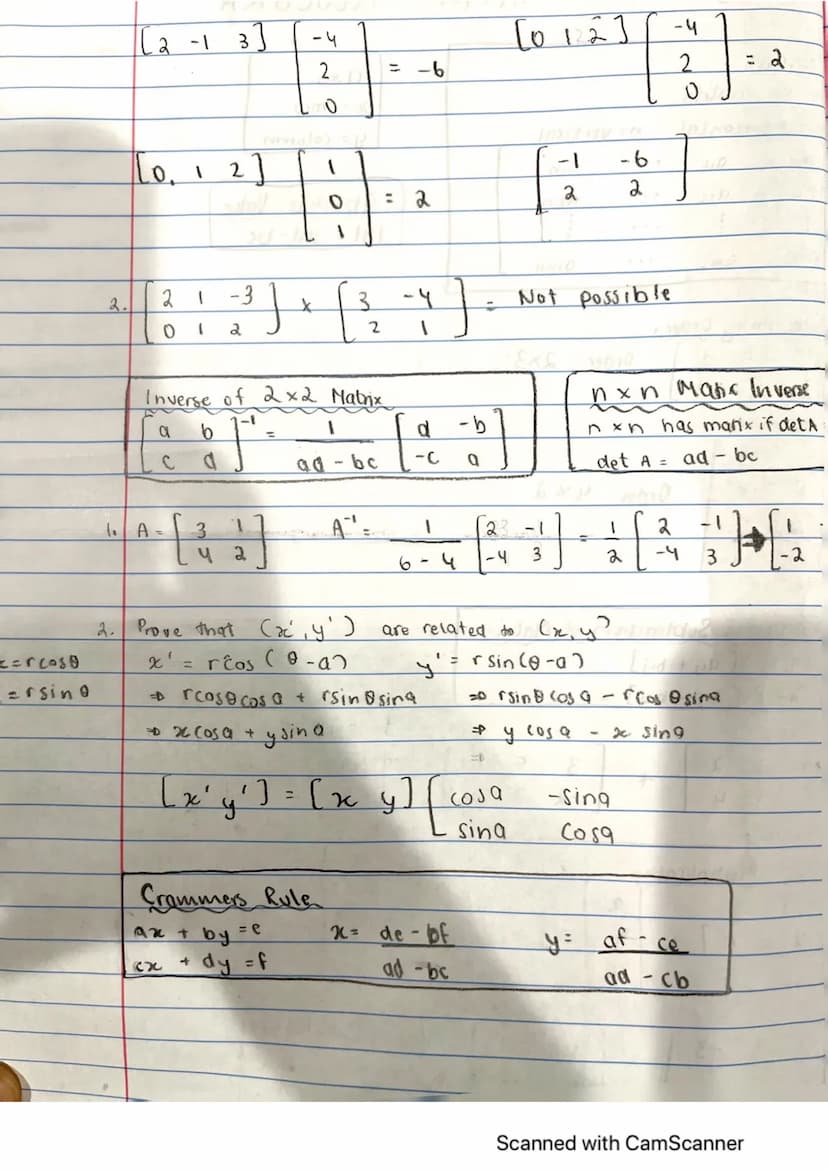 [2 -1 3] [-4 2 0] = -6 [0 1 2] [-4 2 0] = 2
[0, 1 2] [1 0 1] = 2 [-1 -6 2 2]
2. [2 1 -3 0 1 2] x [3 -4 2 1] = Not possible
Inverse of 2x2 Matrix
[a b c d]⁻¹ = 1 / ad - bc [d -b -c a]
n x n Inverse
n x n has if det A
det A = ad - bc
1. A = [3 1 4 2] A⁻¹ = 1 / 6 - 4 [2 -1 -4 3] = 1/2 [2 -1 -4 3] ⇒ [1 -2
2. Prove that (x', y') are related to (x, y)
x = rcosθ x' = rcos (θ - a) y' = r sin(θ - a)
= rsinθ ⇒ rcosθcos a + rsinθsina ⇒ rsinθ cosa - rcosθsina
⇒ xcosa + ysina ⇒ y cosa - x sina
⇒
[x' y'] = [x y] [cosa -sina sina cosa
Crammers Rule
ax + by = e x = de - bf / ad - bc y = af - ce / ad - cb
cx + dy = f
Scanned with CamScanner